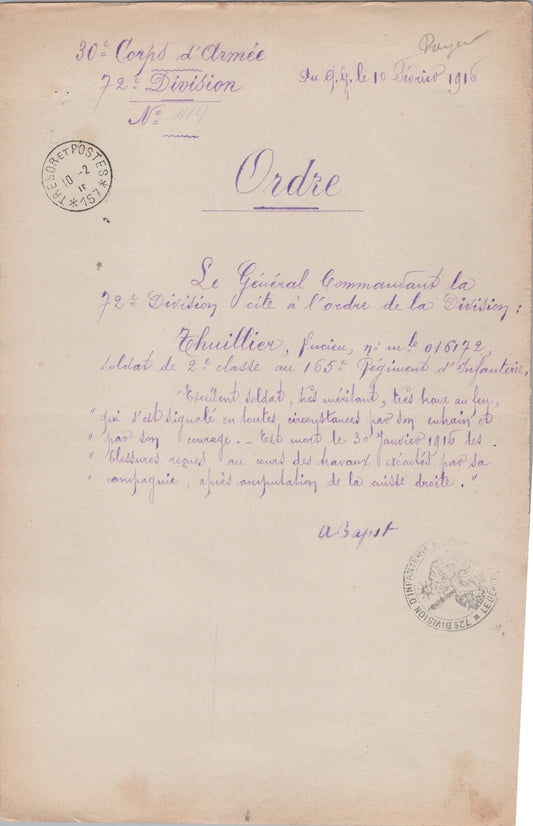 30e Corps d'Armée
72e Division
No 414
Payen
Au Q.G. le 10 Février 1916
TRESOR ET POSTES
10 -2
16
*157*
Ordre
Le Général Commandant la
72e Division cite à l'ordre de la Division :
Thuillier, Lucien, no mle 016172,
soldat de 2e classe au 165e Régiment d'Infanterie.
"Excellent soldat, très méritant, très brave au feu,
" qui s'est signalé en toutes circonstances par son entrain et
" par son courage. - Est mort le 30 Janvier 1916 des
" blessures reçues au cours des travaux exécutés par sa
" compagnie, après amputation de la cuisse droite. "
A Bapst
72e DIVISION D'INFANTERIE
LE GÉN